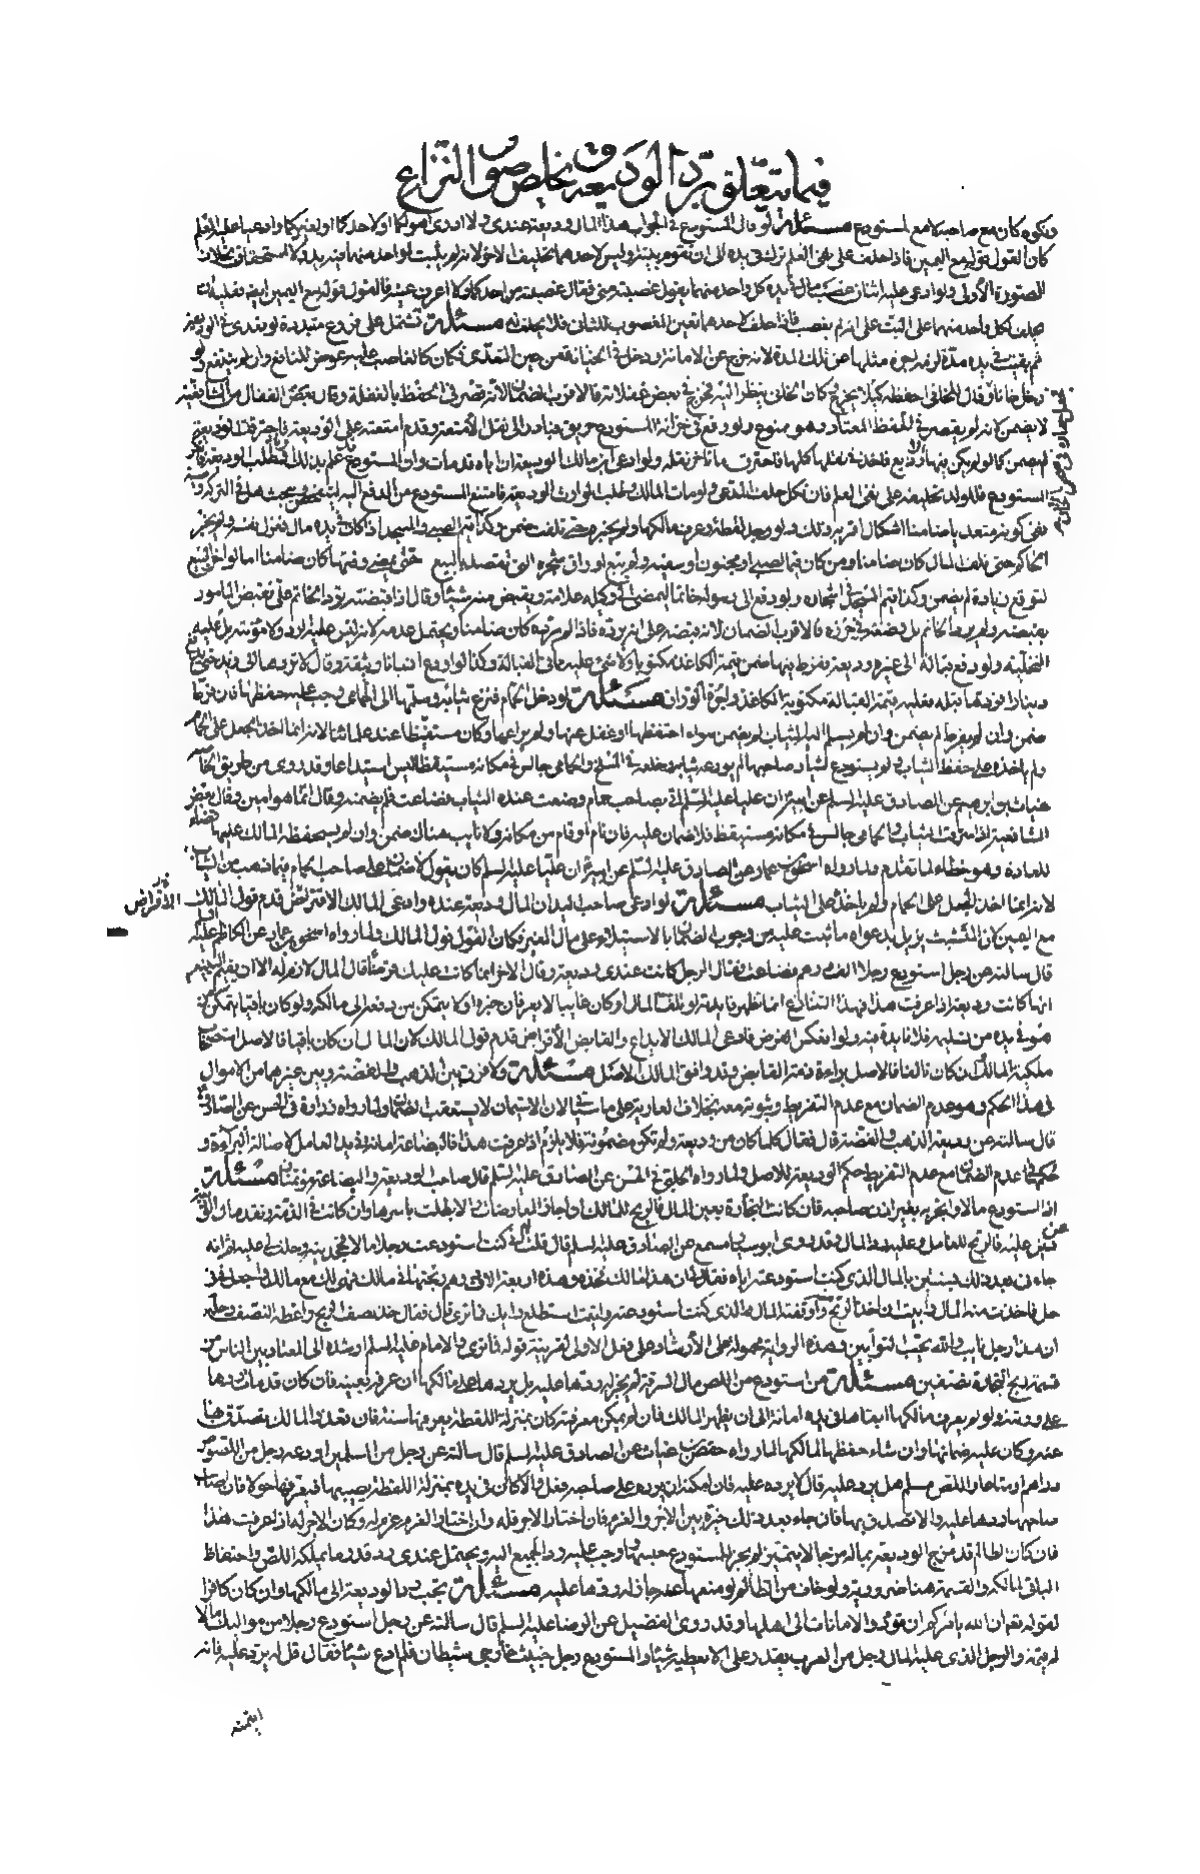 فيما يتعلق برد الوديعة بخاصّ صور النزاع
ويكون كان مع صاحبه لا مع المستودع مسئلة لو قال المستودع في الجواب هذا المال وديعة عندي ولا ادري اهو لكما او لاحدكما او لغيركما وادعيا عليه العلم
كان القول قوله مع اليمين فاذا حلف على نفي العلم ترك في يده الى ان تقوم بينة وليس لاحدهما تحليف الاخر لانه لم يثبت لواحد منهما فيه يد ولا استحقاق بخلاف
الصورة الأولى ولو ادعى عليه اثنان غصب مال في يده كل واحد منهما يقول غصبته مني فقال غصبته من احدكما ولا اعرف عينه فالقول قوله مع اليمين
يحلف لكل واحد منهما على البت على انه لم يغصب فاذا حلف لاحدهما تعين المغصوب للثاني فلا يحلف له مسئلة تشتمل على فروع متبددة لو تعدى في الوديعة
ثم بقيت في يده مدة لزمه اجرة مثلها عن تلك المدة لانه خرج عن الامانة ودخل في الخيانة فمن حين التعدي فكان كالغاصب عليه عوض المنافع وان لم ينتفع ولو
دخل خانا وقال للخاني احفظه كيلا يخرج وكان الخاني ينظر اليه فخرج في بعض غفلاته فالاقرب الضمان لانه قصر في الحفظ بالغفلة وقال بعض القفال من الشافعية
لا يضمن لانه لم يقصر في الحفظ المعتاد وهو ممنوع ولو وقع في خزانة المستودع حريق فبادر الى نقل الأمتعة وقدم امتعته على الوديعة فاحترقت الوديعة
لم يضمن كما لو لم يكن فيها الا ودايع فاخذ في نقلها كلها فاحترق ما تاخر نقله ولو ادعى ابن مالك الوديعة ان اباه قد مات وان المستودع علم بذلك فطلب الوديعة فانكر
المستودع فللولد تحليفه على نفي العلم فان نكل حلف المدعي ولو مات المالك وطلب الوارث الوديعة فامتنع المستودع من الدفع اليه ليتفحص ويبحث هل في التركة وصية
ففي كونه متعديا ضامنا اشكال اقربه ذلك ولو وجد لقطة وعرف مالكها ولم يخبره حتى تلفت ضمن وكذا قيم الصبي والمسجد اذا كان في يده مال فعزل نفسه ولم يخبر
الحاكم حتى تلف المال كان ضامنا ومن كان قيما لصبي او مجنون او سفيه ولم يبع اوراق شجره التي تقصد بالبيع حتى يمضي وقتها كان ضامنا اما لو اخر البيع
لتوقع زيادة لم يضمن وكذا قيم المسجد في اشجاره ولو دفع الى رسوله خاتما ليمضي الى وكيله علامة ويقبض منه شيئا وقال اذا قبضته ترد الخاتم علي فقبض المامور
بقبضه ولم يرد الخاتم بل وضعه في حرزه فالاقرب الضمان لانه قبضه على انه يرده فاذا لم يرده كان ضامنا ويحتمل عدمه لانه ليس عليه الرد ولا مؤنته بل عليه
التخلية ولو دفع قبالة الى غيره وديعة ففرط فيها ضمن قيمة الكاغذ مكتوبا ولا شيء عليه مما في القبالة وكذا لو اودع انسانا وثيقة وقال لا تردها الى زيد حتى يدفع
دينارا فردها قبله فعليه قيمة القبالة مكتوبة الكاغذ واجرة الوراق مسئلة لو دخل الحمام فنزع ثيابه وسلمها الى الحمامي وجب عليه حفظها فان فرط
ضمن وان لم يفرط لم يضمن وان لم يسلم اليه الثياب لم يضمن سواء احتفظها او غفل عنها ولم يراعها وكان مستيقظا عند علمائنا لانه انما اخذ الجعل على الحمام
ولم ياخذه على حفظ الثياب ولو لم يستودع الثياب صاحبها لم يودعه ثيابه وخلعه في المسلخ والحمامي جالس في مكانه مستيقظا ليس استيداعا وقد روى من طريق الخاصة
غياث بن ابرهيم عن الصادق عليه السلم عن ابيه ان عليا عليه السلم اتي بصاحب حمام وضعت عنده الثياب فضاعت فلم يضمنه وقال انما هو امين وقال بعض
الشافعية اذا سرقت الثياب والحمامي جالس في مكانه مستيقظ فلا ضمان عليه فان نام او قام من مكانه ولا نايب هناك ضمن وان لم يستحفظه المالك عليها قضاء
للعادة وهو خطاء لما تقدم ولما رواه اسحق بن عمار عن الصادق عليه السلم عن ابيه ان عليا عليه السلم كان يقول لا ضمان على صاحب الحمام فيما ذهب من الثياب
لانه انما اخذ الجعل على الحمام ولم ياخذ على الثياب مسئلة لو ادعى صاحب اليد ان المال وديعة عنده وادعى المالك الاقراض قدم قول المالك
الاقراض
مع اليمين لان المتشبث يزيل بدعواه ما ثبت عليه من وجوب الضمان بالاستيلاء على مال الغير فكان القول قول المالك ولما رواه اسحق بن عمار عن الكاظم عليه السلم
قال سالته عن رجل استودع رجلا الف درهم فضاعت فقال الرجل كانت عندي وديعة وقال الاخر انما كانت عليك قرضا قال المال لازم له الا ان يقيم البينة
انها كانت وديعة اذا عرفت هذا فهذا التنازع انما تظهر فايدته لو تلف المال او كان غايبا لا يعرفان خبره او لا يتمكن من دفعه الى مالكه ولو كان باقيا يتمكن
هو في يده من تسليمه فلا فايدة فيه ولو انعكس الفرض فادعى المالك الايداع والقابض الأقراض قدم قول المالك لان المال ان كان باقيا فالاصل استصحاب
ملكية المالك وان كان تالفا فالاصل براءة ذمة القابض وقد وافق المالك الاصل مسئلة ولا فرق بين الذهب والفضة وبين غيرهما من الاموال
في هذا الحكم وهو عدم الضمان مع عدم التفريط وثبوته معه بخلاف العارية على ما سياتي لان الاستيمان لا يستعقب الضمان ولما رواه زرارة في الحسن عن الصادق
قال سالته عن وديعة الذهب والفضة قال فقال كلما كان من وديعة ولم تكن مضمونة فلا يلزم اذا عرفت هذا فالبضاعة امانة في يد العامل لاصالة البراءة و
حكمها في عدم الضمان مع عدم التفريط حكم الوديعة للاصل ولما رواه الحلبي في الحسن عن الصادق عليه السلم قال صاحب الوديعة والبضاعة مؤتمنان مسئلة
اذا استودع مالا واتجر به بغير اذن صاحبه فان كانت التجارة بعين المال فالربح للمالك ان اجاز المعاوضات والا بطلت باسرها وان كانت في الذمة ونقد مال الوديعة
عن دينه عليه فالربح للعامل وعليه رد المال وقد روى ابو سيار مسمع عن الصادق عليه السلم قال قلت له اني كنت استودعت رجلا مالا فجحدنيه وحلف لي عليه ثم انه
جاءني بعد ذلك بسنتين بالمال الذي كنت استودعته اياه فقال هذا مالك فخذه وهذه اربعة الاف درهم ربحتها في مالك فهي لك مع مالك واجعلني في
حل فاخذت منه المال وابيت ان اخذ الربح واوقفته المال الذي كنت استودعته واتيت استطلع رايك فما ترى قال فقال خذ نصف الربح واعطه النصف وحله
ان هذا رجل تايب والله يحب التوابين وهذه الرواية محمولة على الأرشاد وعلى فعل الاولى لقرينة قوله فما ترى والامام عليه السلم ارشده الى المعتاد بين الناس من
قسمة ربح التجارة نصفين مسئلة من استودع من اللص مال السرقة لم يجز له ردها عليه بل يردها على مالكها ان عرفه بعينه فان كان قد مات ردها
على ورثته ولو لم يعرف مالكها ابقاها في يده امانة الى ان يظهر المالك فان لم يمكن معرفته كان بمنزلة اللقطة يعرفها سنة فان تعذر المالك تصدق بها
عنه وكان عليه ضمانها وان شاء حفظها لمالكها لما رواه حفص بن غياث عن الصادق عليه السلم قال سالته عن رجل من المسلمين اودعه رجل من اللصوص
دراهم او متاعا واللص مسلم هل يرد عليه قال لا يرده عليه فان امكنه ان يرده على صاحبه فعل والا كان في يده بمنزلة اللقطة يصيبها فيعرفها حولا فان اصاب
صاحبها ردها عليه والا تصدق بها فان جاء بعد ذلك خيره بين الاجر والغرم فان اختار الاجر فله وان اختار الغرم غرم له وكان الاجر له اذا عرفت هذا
فان كان الظالم قد مزج الوديعة بماله مزجا لا يتميز لم يجز للمستودع حبسها ووجب عليه رد الجميع اليه ويحتمل عندي رد قدر ما يملكه اللص واحتفاظ
الباقي لمالكه والقسمة هنا ضرورية ولو خاف من الظالم لو منعها عنه جاز له ردها عليه مسئلة يجب رد الوديعة الى مالكها وان كان كافرا
لقوله تعالى ان الله يامركم ان تؤدوا الامانات الى اهلها وقد روى الفضيل عن الرضا عليه السلم قال سالته عن رجل استودع رجلا من مواليك مالا
له قيمة والرجل الذي عليه المال رجل من العرب يقدر على الا يعطيه شيئا والمستودع رجل خبيث خارجي شيطان فلم ادع شيئا فقال قل له يرد عليه فانه
ايتمنه